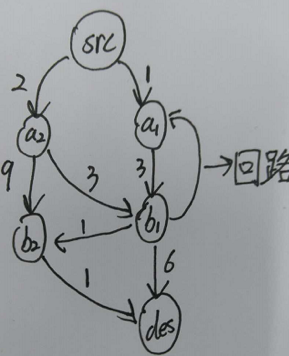 src
2
1
a2
a1
9
3
3
回路
b2
1
b1
1
6
des